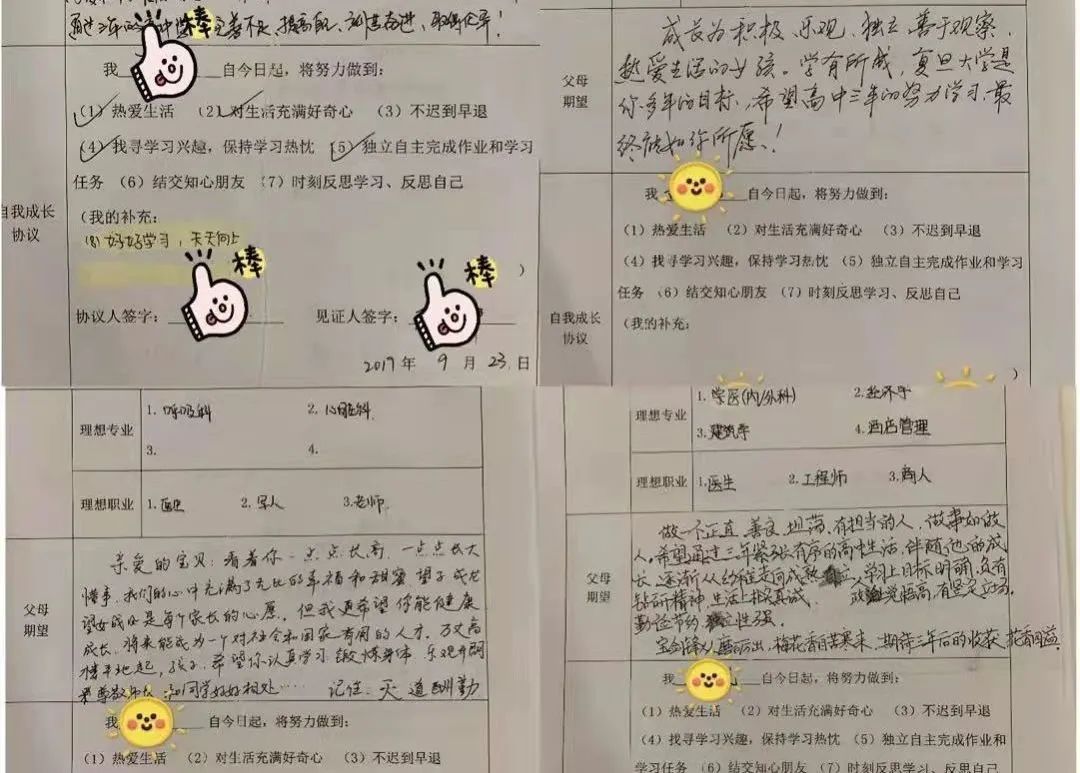 通过三年的
完善不足,提高自
棒
我
自今日起,将努力做到:
(1)热爱生活 (2)对生活充满好奇心 (3)不迟到早退
(4)找寻学习兴趣,保持学习热忱 (5)独立自主完成作业和学习
任务 (6)结交知心朋友 (7)时刻反思学习、反思自己
自我成长
协议
(我的补充:
(8)好好学习,天天向上
棒
棒
)
协议人签字: 见证人签字:
2019年 9 月 23 日
父母
期望
成长为积极、乐观、独立、善于观察、
热爱生活的女孩。学有所成,复旦大学是
你多年的目标,希望高中三年的努力学习,最
终能如你所愿!
我
自今日起,将努力做到:
(1)热爱生活 (2)对生活充满好奇心 (3)不迟到早退
(4)找寻学习兴趣,保持学习热忱 (5)独立自主完成作业和学习
任务 (6)结交知心朋友 (7)时刻反思学习、反思自己
自我成长
协议
(我的补充:
)
理想专业
1.呼吸科 2.心脏科
3. 4.
理想职业
1.医生 2.军人 3.老师
父母
期望
亲爱的宝贝:看着你一点点长高,一点点长大
懂事,我们的心中充满了无比的幸福和甜蜜。望子成龙
望女成凤是每个家长的心愿,但我更希望你能健康
成长,将来能成为一个对社会和国家有用的人才。万丈高
楼平地起,孩子,希望你认真学习,锻炼身体,乐观开朗
尊敬师长,和同学好好相处…… 记住:天道酬勤
我
自今日起,将努力做到:
(1)热爱生活 (2)对生活充满好奇心 (3)不迟到早退
理想专业
1.学医(内/外科) 2.经济学
3.建筑学 4.酒店管理
理想职业
1.医生 2.工程师 3.商人
父母
期望
做一个正直、善良、坦荡、有担当的人,做事如做
人。希望通过三年紧张有序的高中生活,伴随他的成
长,逐渐从幼稚走向成熟 学习上目标明确,具有
钻研精神,生活上 真诚 有坚定立场
勤俭节约 性强。
宝剑锋从磨砺出,梅花香自苦寒来,期待三年后的收获,花香四溢
我
自今日起,将努力做到:
(1)热爱生活 (2)对生活充满好奇心 (3)不迟到早退
(4)找寻学习兴趣,保持学习热忱 (5)独立自主完成作业和
学习任务 (6)结交知心朋友 (7)时刻反思学习、反思自己